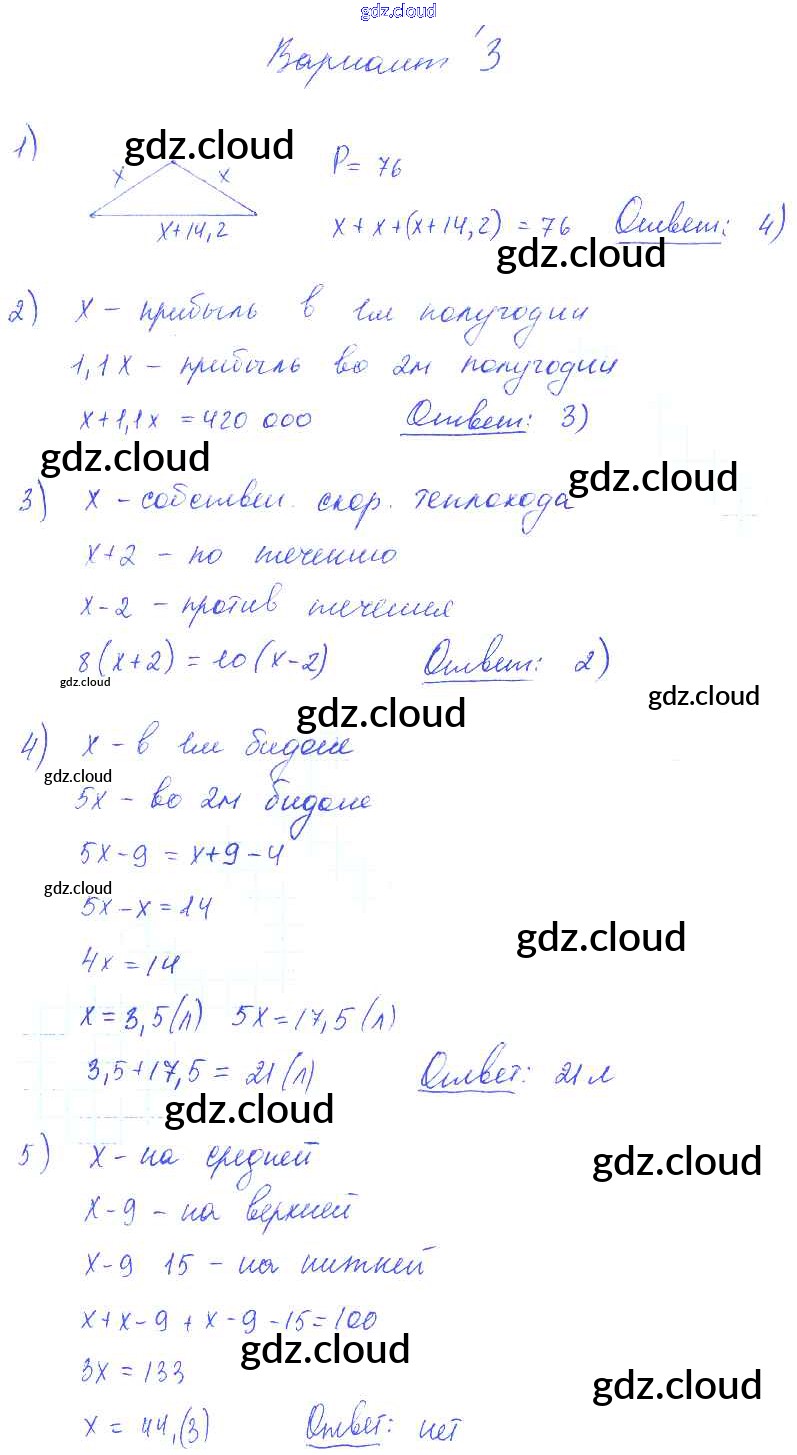 gdz.cloud
Вариант 3
1)
gdz.cloud
x x P = 76
x+14,2 x + x + (x + 14,2) = 76 Ответ: 4)
gdz.cloud
2) x - прибыль в 1м полугодии
1,1x - прибыль во 2м полугодии
x + 1,1x = 420 000 Ответ: 3)
gdz.cloud
gdz.cloud
3) x - собствен. скор. теплохода
x+2 - по течению
x-2 - против течения
8(x+2) = 10(x-2) Ответ: 2)
gdz.cloud
gdz.cloud
gdz.cloud
4) x - в 1м бидоне
gdz.cloud
5x - во 2м бидоне
5x - 9 = x + 9 - 4
gdz.cloud
5x - x = 14
gdz.cloud
4x = 14
x = 3,5 (л) 5x = 17,5 (л)
3,5 + 17,5 = 21 (л) Ответ: 21 л
gdz.cloud
5) x - на средней
gdz.cloud
x - 9 - на верхней
x - 9 15 - на нижней
x + x - 9 + x - 9 - 15 = 100
gdz.cloud
3x = 133
gdz.cloud
x = 44,(3) Ответ: нет